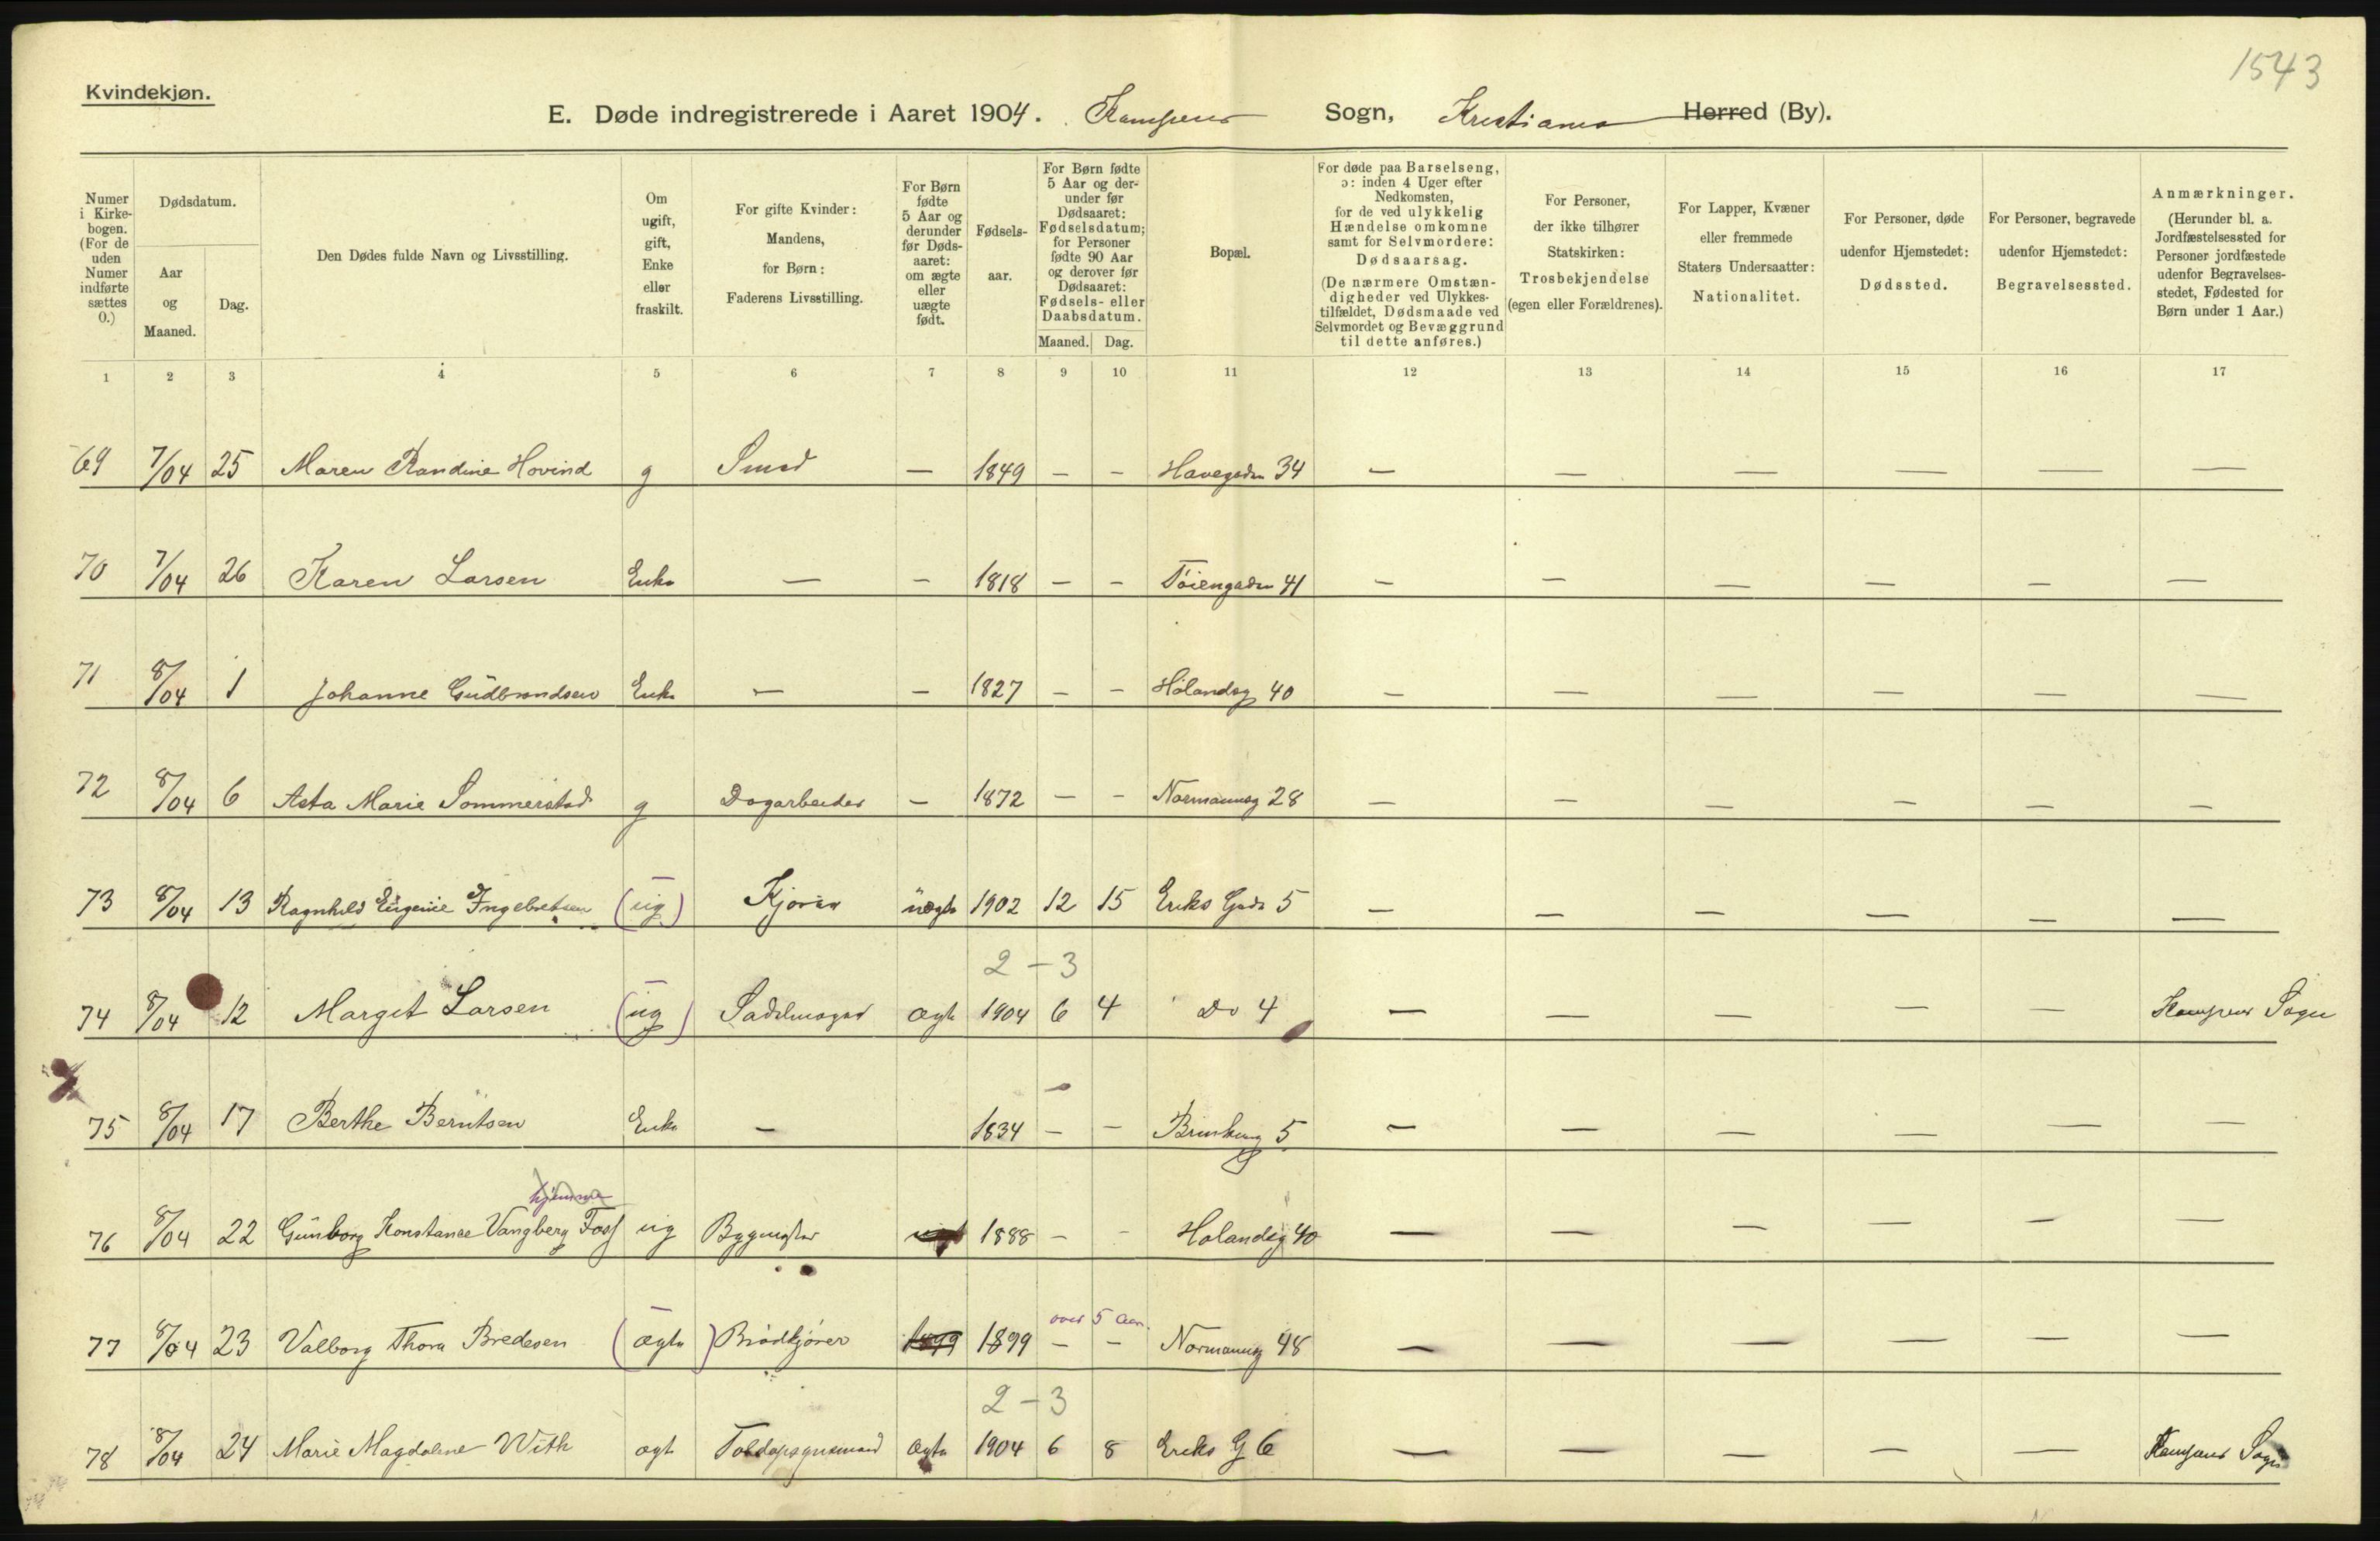 1543
Kvindekjøn.
E. Døde indregistrerede i Aaret 1904. Kampens Sogn, Kristiania Herred (By).
Numer i Kirkebogen. (For de uden Numer indførte sættes 0.)
Dødsdatum.
Aar og Maaned.
Dag.
Den Dødes fulde Navn og Livsstilling.
Om ugift, gift, Enke eller fraskilt.
For gifte Kvinder: Mandens, for Børn: Faderens Livsstilling.
For Børn fødte 5 Aar og derunder før Dødsaaret: om ægte eller uægte født.
Fødselsaar.
For Børn fødte 5 Aar og derunder før Dødsaaret: Fødselsdatum; for Personer fødte 90 Aar og derover før Dødsaaret: Fødsels- eller Daabsdatum.
Maaned. Dag.
Bopæl.
For døde paa Barselseng, ɔ: inden 4 Uger efter Nedkomsten, for de ved ulykkelig Hændelse omkomne samt for Selvmordere: Dødsaarsag. (De nærmere Omstændigheder ved Ulykkestilfældet, Dødsmaade ved Selvmordet og Bevæggrund til dette anføres.)
For Personer, der ikke tilhører Statskirken: Trosbekjendelse (egen eller Forældrenes).
For Lapper, Kvæner eller fremmede Staters Undersaatter: Nationalitet.
For Personer, døde udenfor Hjemstedet: Dødssted.
For Personer, begravede udenfor Hjemstedet: Begravelsessted.
Anmærkninger. (Herunder bl. a. Jordfæstelsessted for Personer jordfæstede udenfor Begravelsesstedet, Fødested for Børn under 1 Aar.)
1 2 3 4 5 6 7 8 9 10 11 12 13 14 15 16 17
69 7/04 25 Maren Randine Hovind g Smed — 1849 — — Havegaden 34 — — — — — —
70 7/04 26 Karen Larsen Enke — — 1818 — — Töiengaden 41 — — — — — —
71 8/04 1 Johanne Gudbrandsen Enke — — 1827 — — Hölandsg 40 — — — — — —
72 8/04 6 Asta Marie Sommerstad g Dagarbeider — 1872 — — Normannsg 28 — — — — — —
73 8/04 13 Ragnhild Eugenie Ingebretsen (ug) Kjører uægte 1902 12 15 Eriks Gade 5 — — — — — —
2 – 3
74 8/04 12 Margit Larsen (ug) Sadelmager ægte 1904 6 4 Do 4 — — — — — Kampens Sogn
75 8/04 17 Berthe Berntsen Enke — 1834 — — 5 — — — — — —
hjemme
76 8/04 22 Gunborg Konstance Vangberg Foss ug Bygmester 1888 — — Hölandsg 40 — — — — — —
over 5 Aar.
77 8/04 23 Valborg Thora Bredesen (ægte) Brödkjörer 1899 1899 — — Normannsg 48 — — — — — —
2 – 3
78 8/04 24 Marie Magdalene With ægt Toldopsynsmand ægte 1904 6 8 Eriks G 6 — — — — — Kampens Sogn